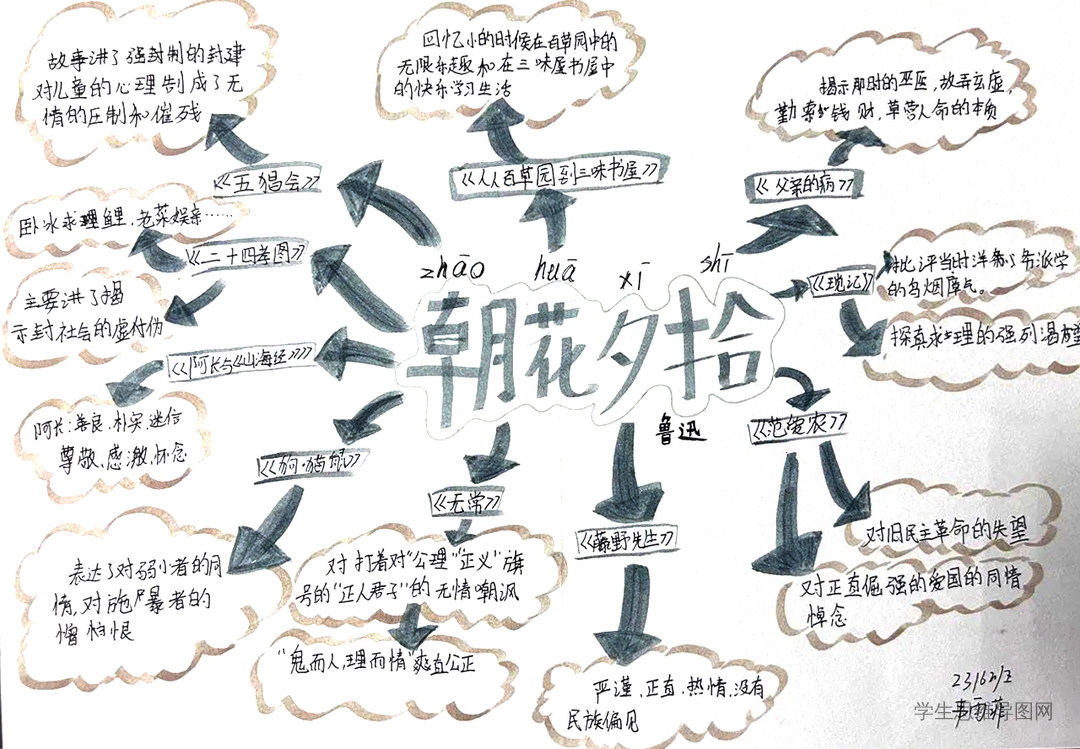 故事讲了强封制的封建
对儿童的心理制成了无
情的压制和催残
《五猖会》
回忆小的时候在百草园中的
无限乐趣和在三味屋书屋中
的快乐学习生活
《从百草园到三味书屋》
揭示那时的巫医,故弄玄虚,
勤索钱财,草菅人命的本质
《父亲的病》
卧冰求鲤,老莱娱亲……
《二十四孝图》
主要讲了揭
示封社会的虚伪
《阿长与《山海经》》
阿长:善良、朴实、迷信
尊敬、感激、怀念
《狗·猫·鼠》
表达了对弱小者的同
情,对施暴者的
憎恨
zhāo huā xī shī
朝花夕拾
鲁迅
《琐记》
批评当时洋务派学
的乌烟瘴气。
探真求理的强列渴望
《范爱农》
对旧民主革命的失望
对正直倔强的爱国的同情
悼念
《无常》
对打着对“公理”“正义”旗
号的“正人君子”的无情嘲讽
“鬼而人,理而情”爽直公正
《藤野先生》
严谨,正直,热情,没有
民族偏见
学生导图网